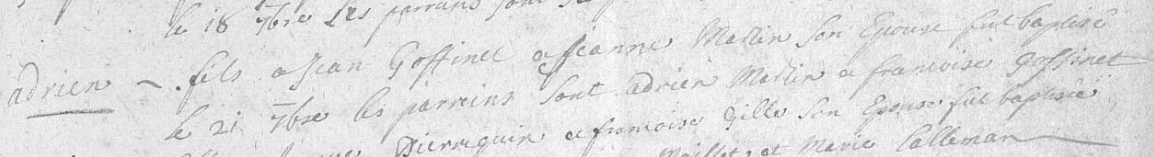 le 18 7bre les parrains sont
adrien ~ fils a jean Goffinet et jeanne Martin son Epouse fut baptisé
le 21 7bre les parrains sont adrien Martin et francoise goffinet
Pierre quirin et francoise Gille son Epouse fut baptisée
Maillet, et Marie Calleman